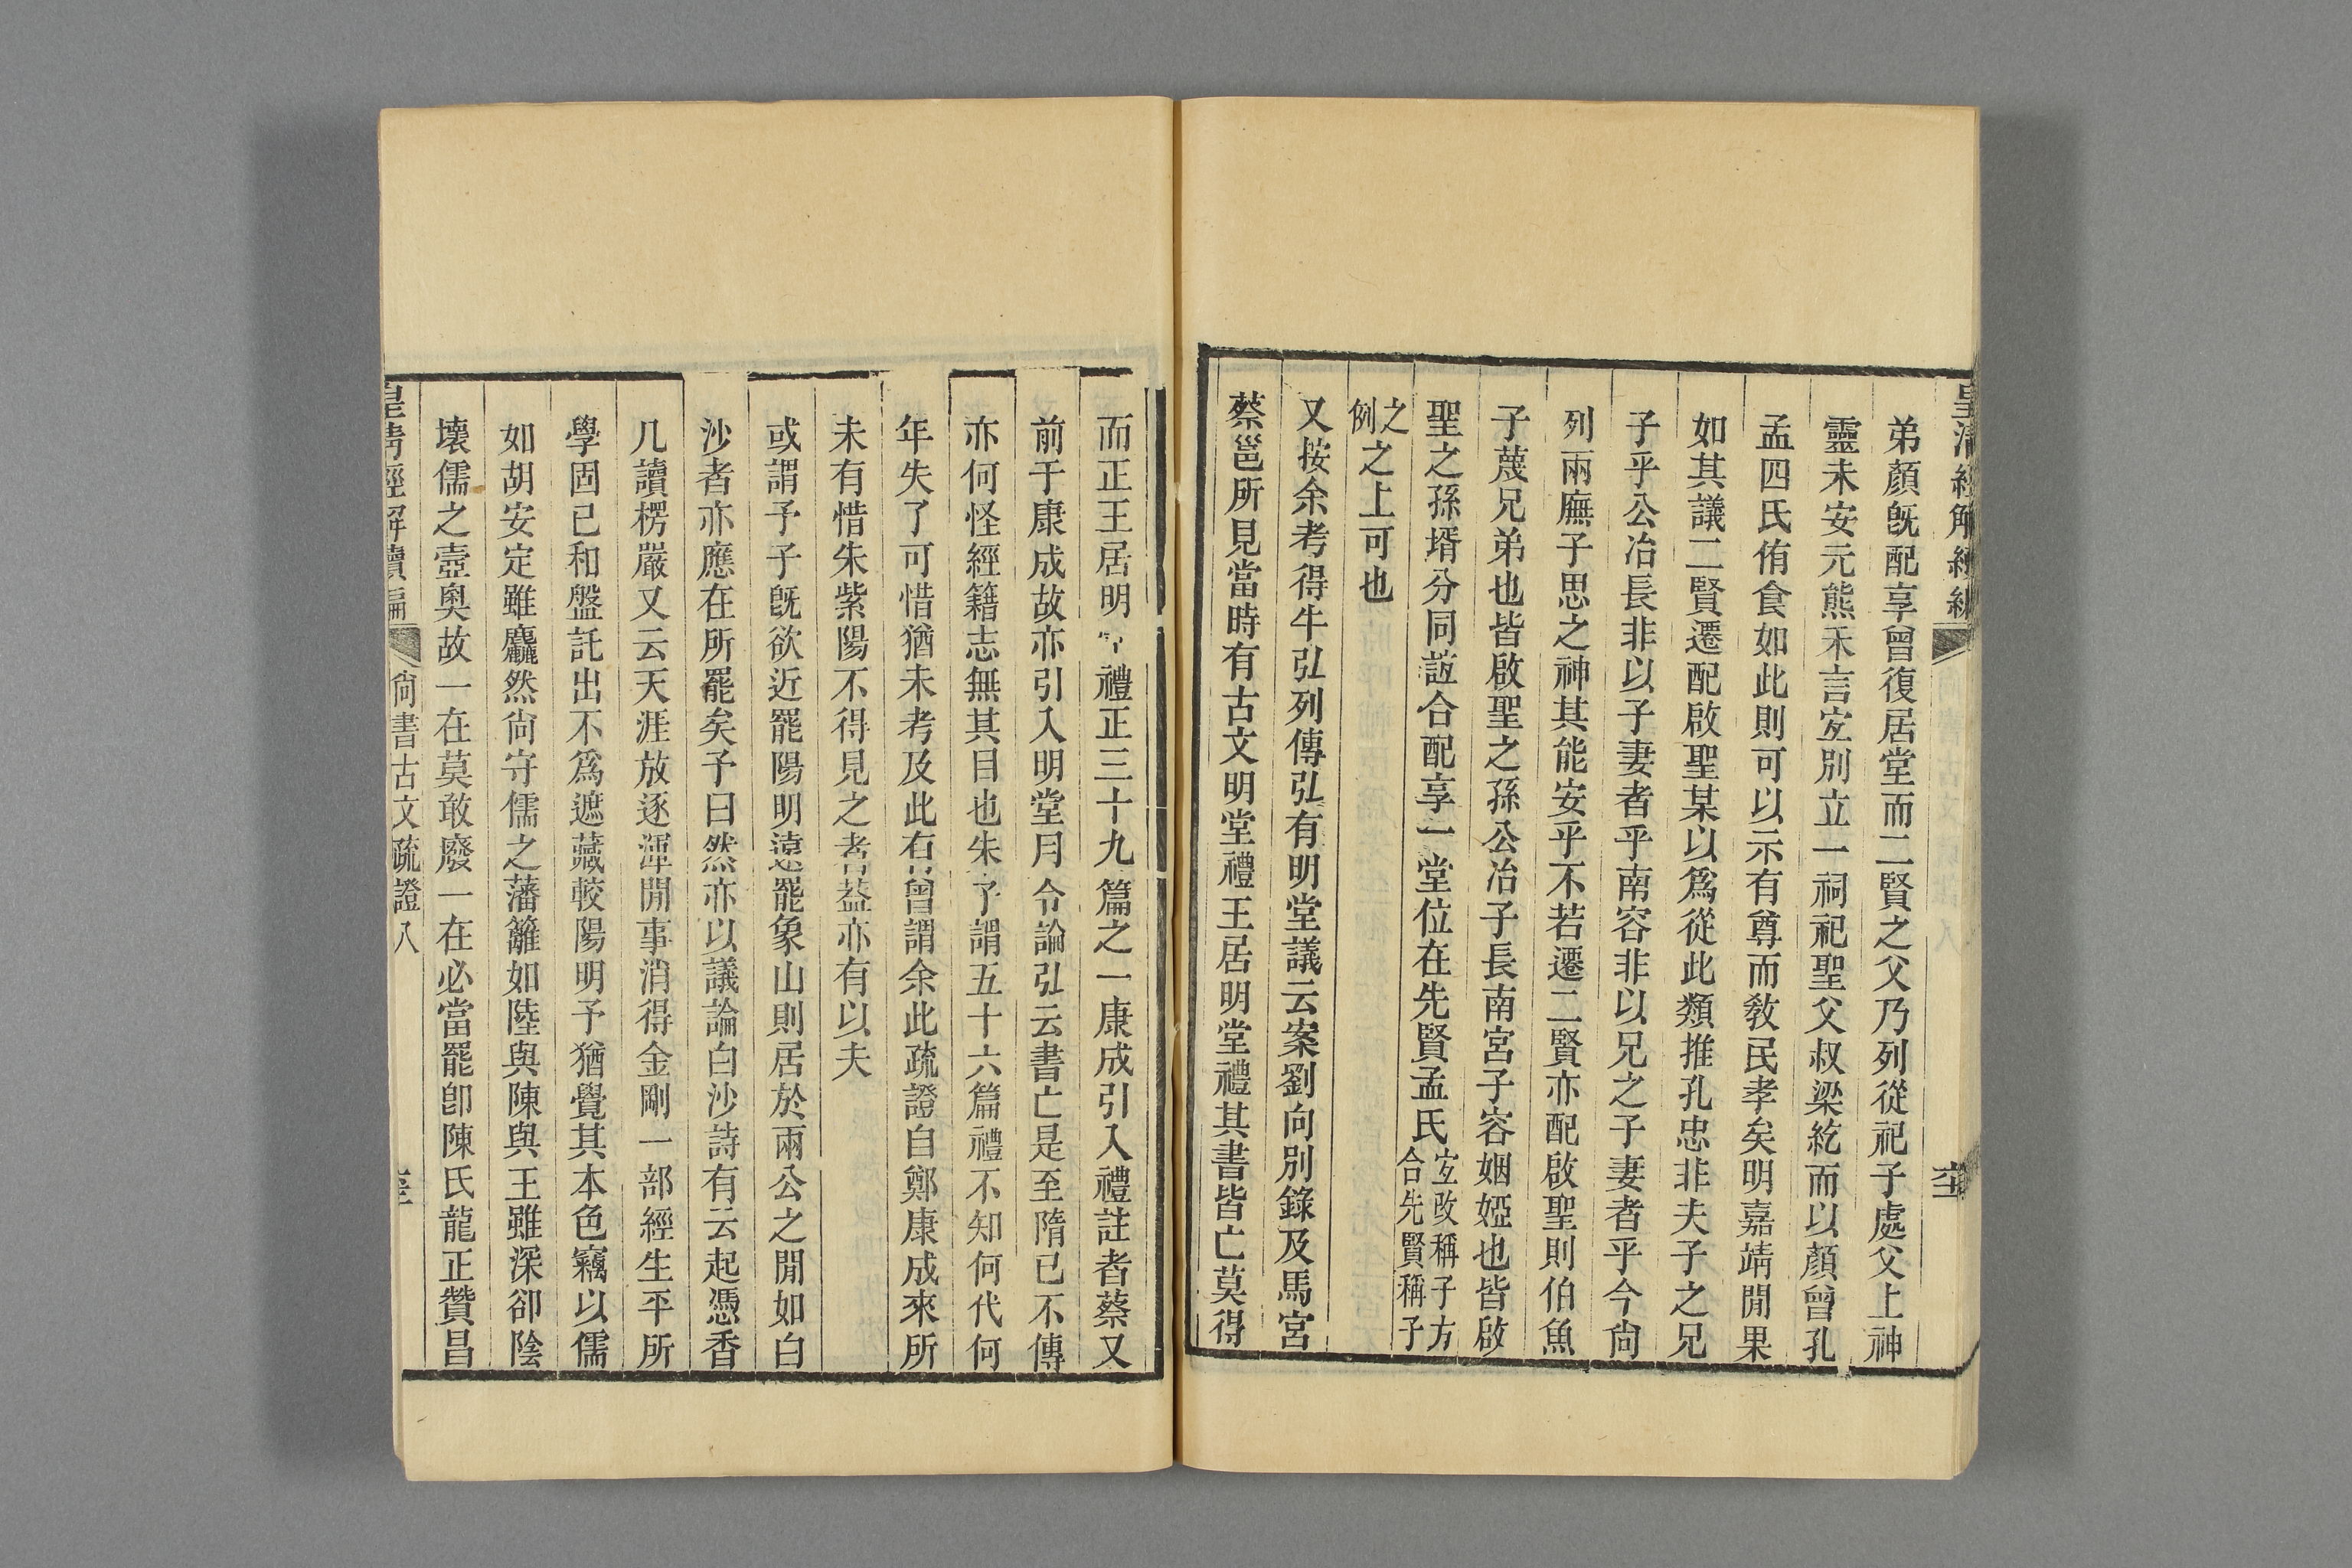 弟顏旣配享曾復居堂而二賢之父乃列從祀子處父上神
靈未安元熊禾言宐別立一祠祀聖父叔梁紇而以顏曾孔
孟四氏侑食如此則可以示有尊而敎民孝矣明嘉靖閒果
如其議二賢遷配啟聖某以爲從此類推孔忠非夫子之兄
子乎公冶長非以子妻者乎南容非以兄之子妻者乎今尙
列兩廡子思之神其能安乎不若遷二賢亦配啟聖則伯魚
子蔑兄弟也皆啟聖之孫公冶子長南宮子容姻婭也皆啟
聖之孫壻分同誼合配享一堂位在先賢孟氏宐改稱子方合先賢稱子
之例之上可也
又按余考得牛弘列傳弘有明堂議云案劉向別錄及馬宮
蔡邕所見當時有古文明堂禮王居明堂禮其書皆亡莫得
而正王居明 禮正三十九篇之一康成引入禮註者蔡又
前于康成故亦引入明堂月令論弘云書亡是至隋已不傳
亦何怪經籍志無其目也朱子謂五十六篇禮不知何代何
年失了可惜猶未考及此右曾謂余此疏證自鄭康成來所
未有惜朱紫陽不得見之者葢亦有以夫
或謂予子旣欲近罷陽明遠罷象山則居於兩公之閒如白
沙者亦應在所罷矣予曰然亦以議論白沙詩有云起憑香
几讀楞嚴又云天涯放逐渾閒事消得金剛一部經生平所
學固已和盤託出不爲遮藏較陽明予猶覺其本色竊以儒
如胡安定雖麤然尙守儒之藩籬如陸與陳與王雖深卻陰
壞儒之壼奧故一在莫敢廢一在必當罷卽陳氏龍正贊昌
皇清經解續編 尙書古文疏證八